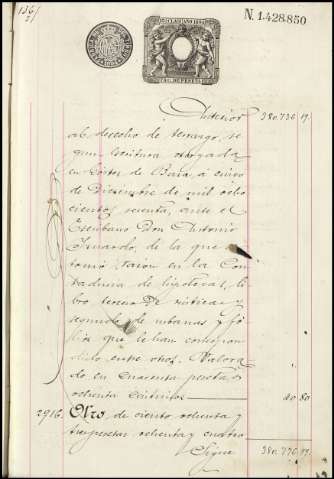 136/
N. 1.428.850
Anterior 380.730 19.
al derecho de tenazgo, se
gun escritura otorgada
en Cortes de Baza, a cinco
de Diciembre de mil ocho
cientos sesenta, ante el
Escribano Don Antonio
de la que
tomó razon en la Con
taduria de hipotecas, li
bro tercero de rústicas y
segundo de urbanas y fó
lios que le han correspon
dido entre otros. Valora
do en cuarenta pesetas
ochenta centimos 40 80
2916. Otro, de ciento ochenta y
tres pesetas ochenta y cuatro
Sigue 380.770 99.